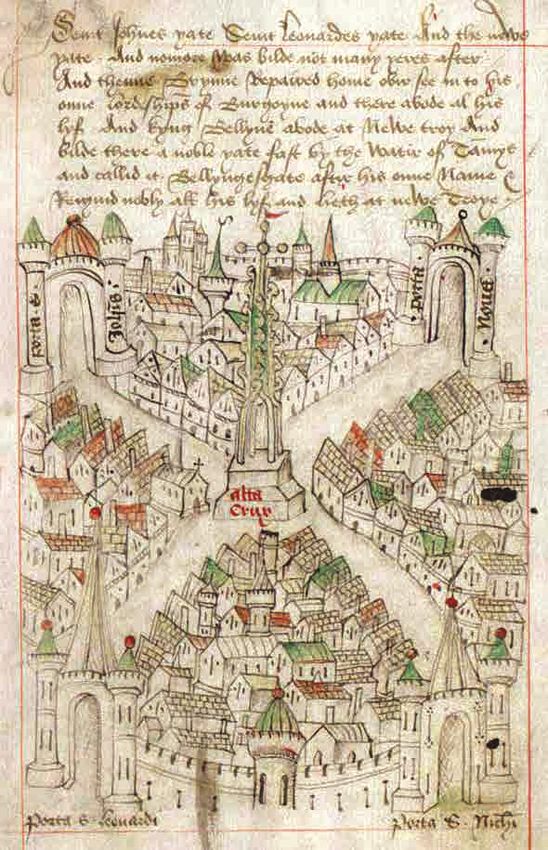 Seint Johnes yate Seint Leonardes yate And the newe
yate. And nomore was bilde not many yeres after
And thenne Brynne Repaired home ovir see in to his
onne lordships of Burgoyne and there abode al his
lyf. And kyng Bellyne abode at Newe troy And
bilde there a noble yate fast by the watir of Tamys
and callid it Bellyngesgate after his onne Name &
Reignid nobly all his lyf and lieth at newe Troye
porta S.
Johis
porta
Nova
alta
Crux
porta S. leonardi
porta S. Nichi